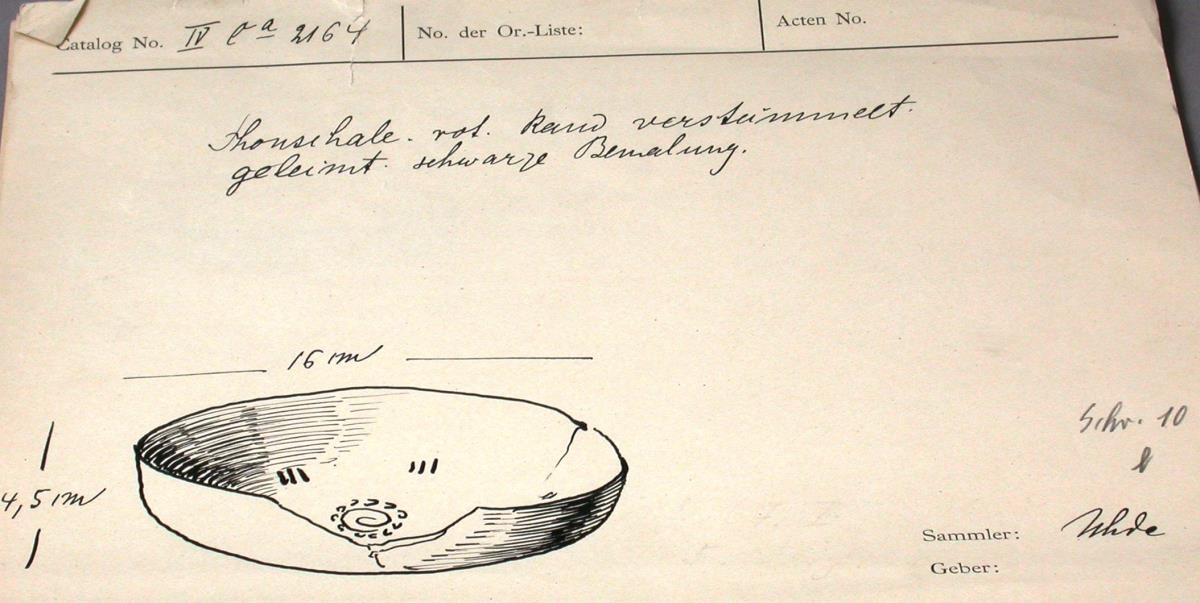 Catalog No. IV Ca 2164 No. der Or.-Liste: Acten No.
Thonschale. rot. Rand verstümmelt.
geleimt. schwarze Bemalung.
16 cm
4,5 cm
Schr. 10
Sammler: Uhde
Geber: